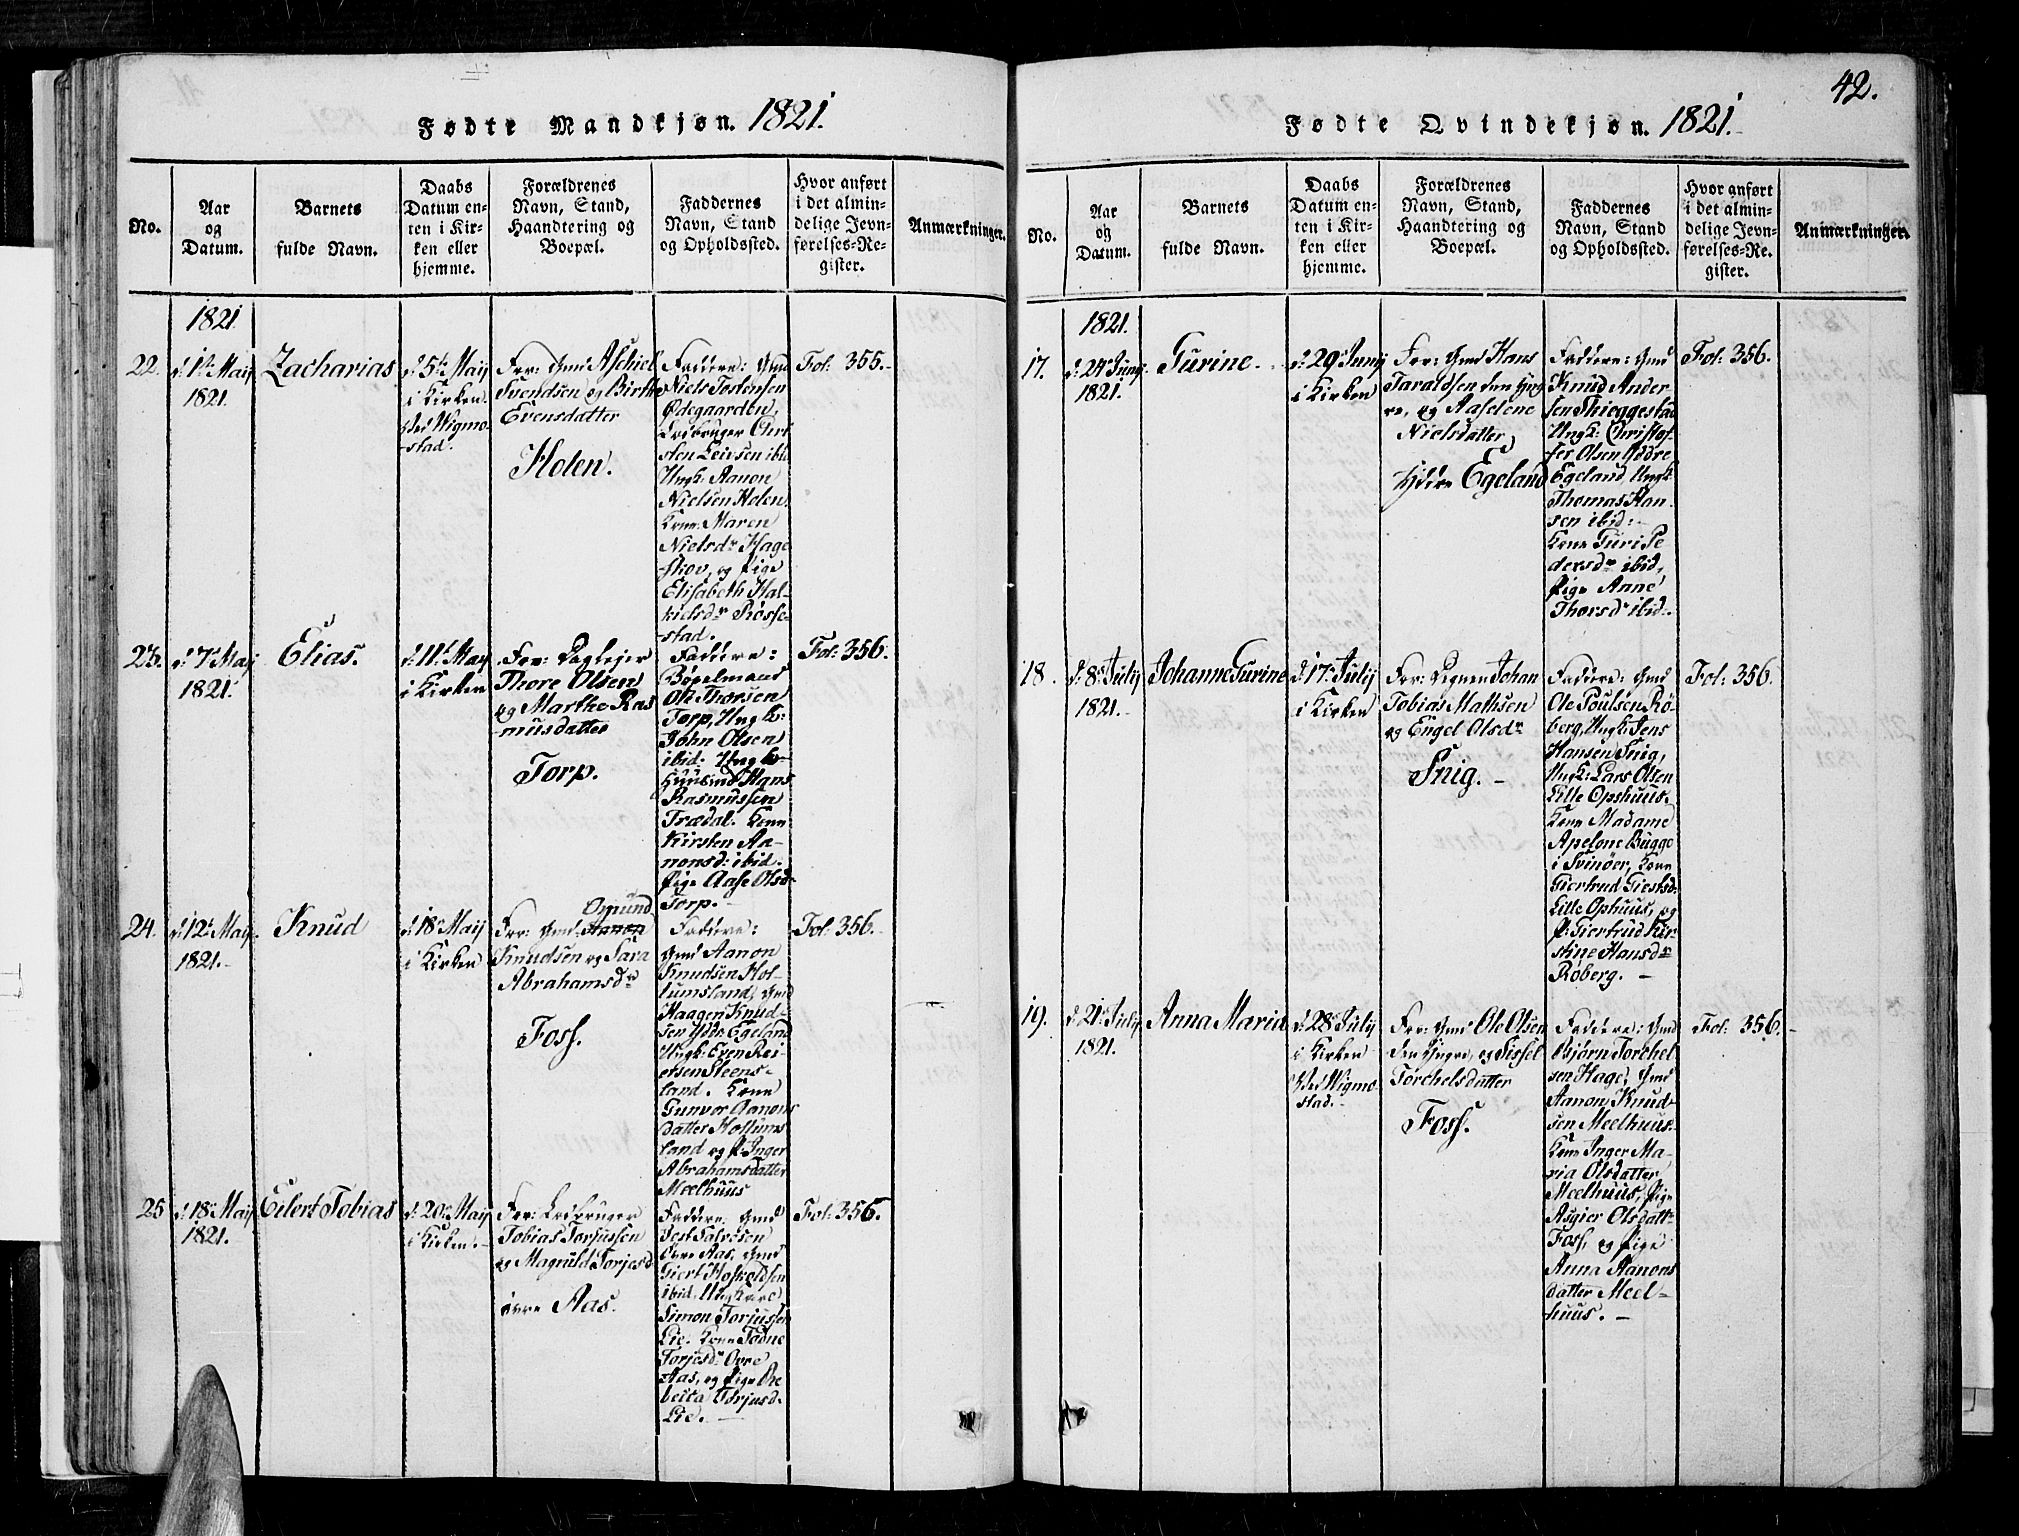 Fødte Mandkjøn. 1821.
No.
Aar
og
Datum.
Barnets
fulde Navn.
Daabs
Datum en-
ten i Kir-
ken eller
hjemme.
Forældrenes
Navn, Stand,
Haandtering og
Boepæl.
Faddernes
Navn, Stand
og Opholdssted.
Hvor anført
i det almin-
delige Jevn-
førelses-Re-
gister.
Anmærkninger.
1821
22.
d: 1te Maij
1821.
Zacharias
d: 5te Maij
i Kirken
Ved Wigmo-
stad.
For: Gmd Aschiel
Svendsen og Birthe
Evensdatter
Holen.
Faddere: Gmd
Niels Tostensen
Ødegaarden,
Ledbruger Chri
sten Leivsen ibid
Ungk: Aanon
Nielsen Holen.
Kone: Maren
Nielsdr Hage
skov, og Pige
Elisabeth Hal-
kielsdr Røsse-
stad.
Fol: 355.
23.
d: 7de Maij
1821.
Elias.
d: 11te Maij
i Kirken
For: Dagleier
Thore Olsen
og Marthe Ras
musdatter
Torp.
Faddere:
Bøpelmand
Ole Thorsen
Torp, Ungk:
John Olsen
ibid: Ungk:
Huusmd Hans
Rasmussen
Trædal. Kone
Kirsten Aa-
nonsd: ibid.
Pige Aase Olsd-
Torp.
Fol: 356.
24.
d: 12te Maij
1821.
Knud
d: 18de Maij
i Kirken
Omund
For: Gmd: Aanon
Knudsen og Sara
Abrahamsdr
Foss.
Faddere:
Gmd Aanon
Knudsen Hol-
lumsland, Gmd
Haagen Knud-
sen Ydre Egeland
Ungk: Even Rei-
ersen Steens-
land. Kone
Gunvor Aanons
datter Hollums
land og P: Inger
Abrahamsdatter
Meelhuus
Fol: 356.
25
d: 18de Maij
1821.
Eilert Tobias
d: 20de Maij
i Kirken.
For: Ledbruger
Tobias Torjussen
og Magnild Torjesd
øvre Aas.
Faddere: Gmd
Jest Salvesen
Øvre Aas, Gmd
Giert Hoskoldsen
ibid, Ungkarl
Simon Torjussen
Lie. Kone Todne
Torjesdr Øvre
Aas, og Pige Re
becca Torjusd.
Lie.
Fol: 356.
42.
Fødte Qvindekjøn. 1821.
No.
Aar
og
Datum.
Barnets
fulde Navn.
Daabs
Datum en-
ten i Kir-
ken eller
hjemme.
Forældrenes
Navn, Stand,
Haandtering og
Boepæl.
Faddernes
Navn, Stand
og Opholdssted.
Hvor anført
i det almin-
delige Jevn-
førelses-Re-
gister.
Anmærkninger.
1821.
17.
d: 24de Junij
1821.
Turine.
d: 29de Junij
i Kirken
For: Gmd Hans
Taraldsen den Yng
re, og Aaselene
Nielsdatter,
Ydere Egeland
Faddere: Gmd
Knud Ander
sen Thieggestad
Ungk: Christof-
fer Olsen Ydre
Egeland, Ungk:
Thomas Han-
sen ibid:
Kone Turi Pe
dersdr ibid,
Pige Anne
Thorsdr ibid.
Fol: 356.
18.
d: 8de Julij
1821.
Johanne Turine
d: 17de Julij
i Kirken
For: Degnen Johan
Tobias Mathsen
og Engel Olsdr
Snig.
Faddere: Gmd
Ole Poulsen Rø-
berg, Ungk: Jens
Hansen Snig,
Ungk: Lars Olsen
Lille Opshuus.
Kone Madame
Apelone Bugge
i Svinøer, Kone
Giertrud Giestsd.
Lille Ophuus, og
P: Giertrud Kir
stine Hansdr
Røberg.
Fol: 356.
19.
d: 21de Julij
1821.
Anna Maria
d: 28de Julij
i Kirken
Ved Wigmo-
stad.
For: Gmd Ole Olsen
den Yngre, og Sissel
Torchelsdatter
Foss.
Faddere: Gmd
Bjørn Torchel
sen Hage, Gmd
Aanon Knud-
sen Meelhuus.
Kone Inger Ma-
ria Olsdatter
Meelhuus, Pige
Asgier Olsdattr
Foss, og Pige
Anna Aanons
datter Meel-
huus.
Fol: 356.